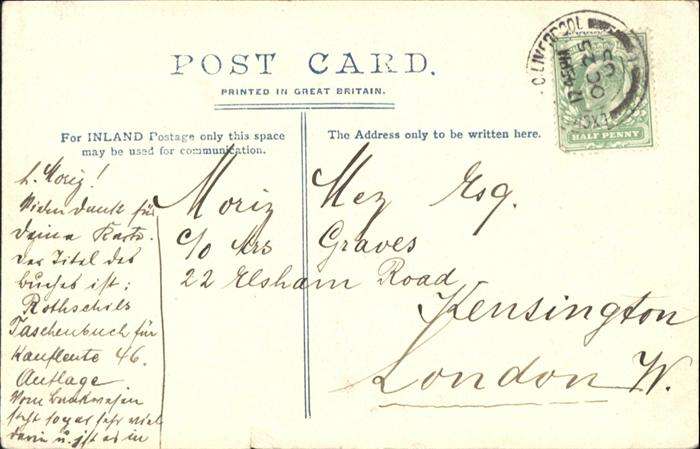 POST CARD.
PRINTED IN GREAT BRITAIN.
For INLAND Postage only this space
may be used for communication.
The Address only to be written here.
HALF PENNY
LIVERPOOL
OC 25
L. Moriz!
Vielen Dank für
Deine Karte.
Der Titel des
Buches ist:
Rothschilds
Taschenbuch für
Kaufleute 46.
Auflage
Vom Bankwesen
steht sogar sehr viel
darin u. ist es in
Moriz Mez Esq.
c/o Mrs Graves
22 Elsham Road
Kensington
London W.